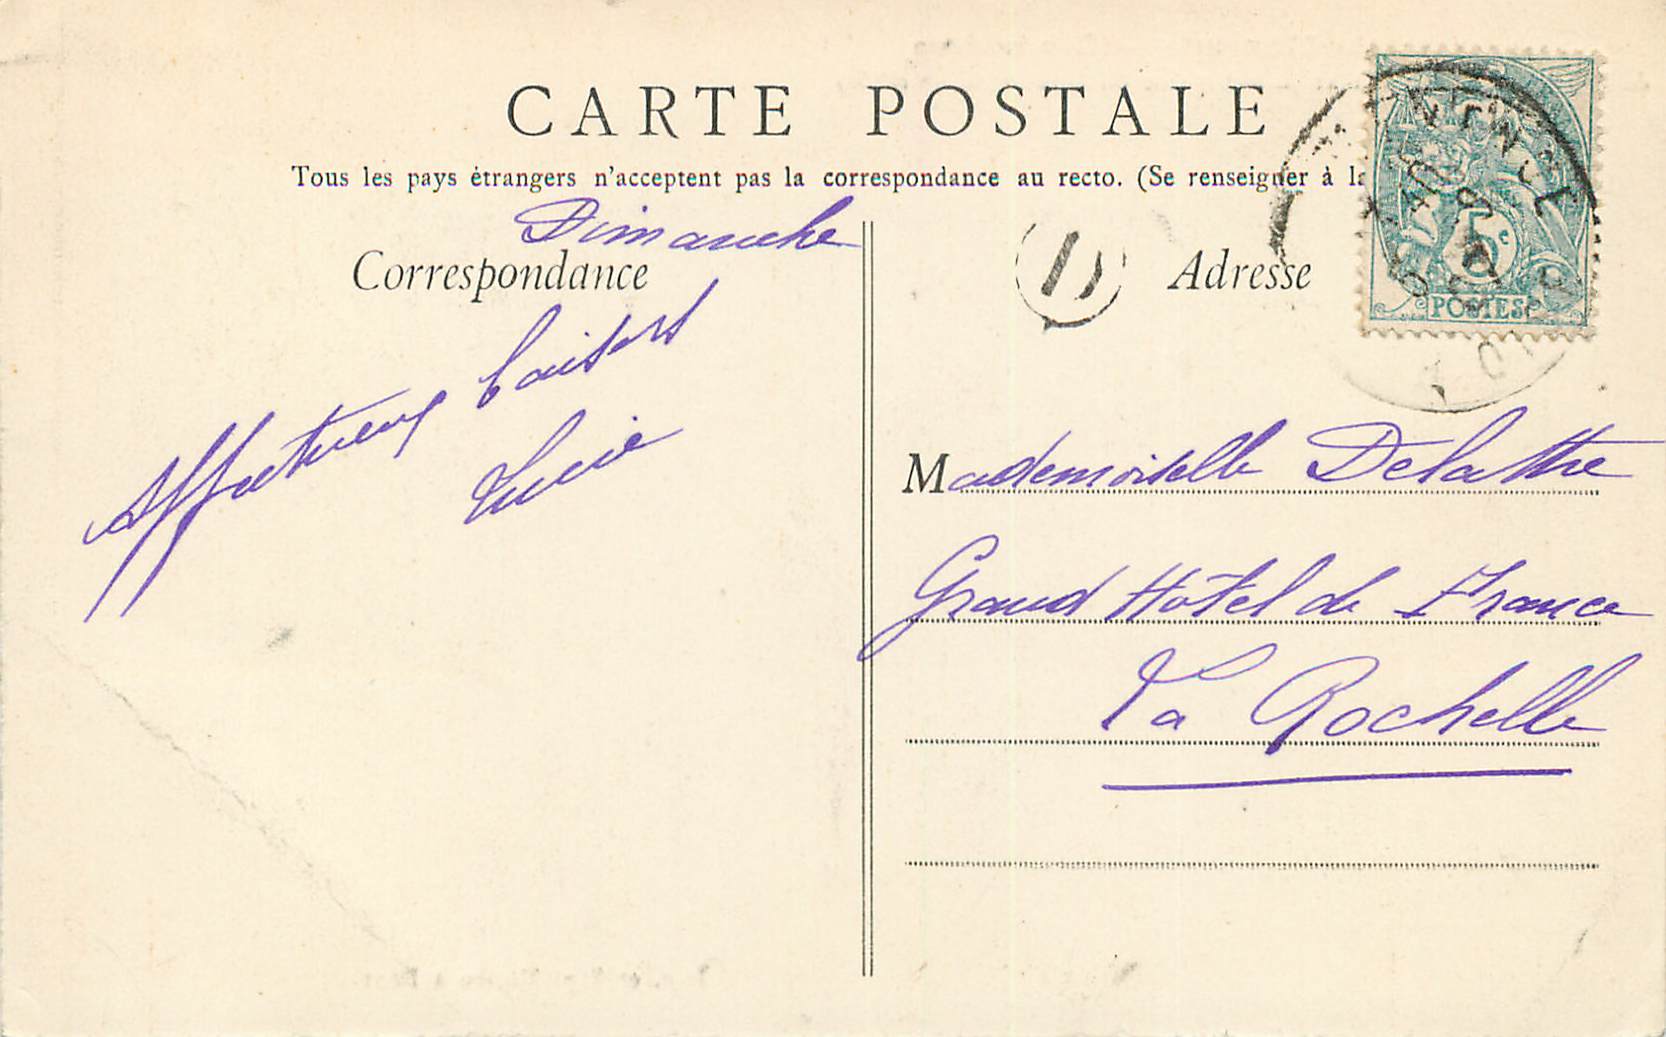 CARTE POSTALE
Tous les pays étrangers n'acceptent pas la correspondance au recto. (Se renseigner à la
Dimanche
Correspondance
Affectueux baisers
Lucie
D
Adresse
5c
POSTES
Mademoiselle Delattre
Grand Hôtel de France
La Rochelle